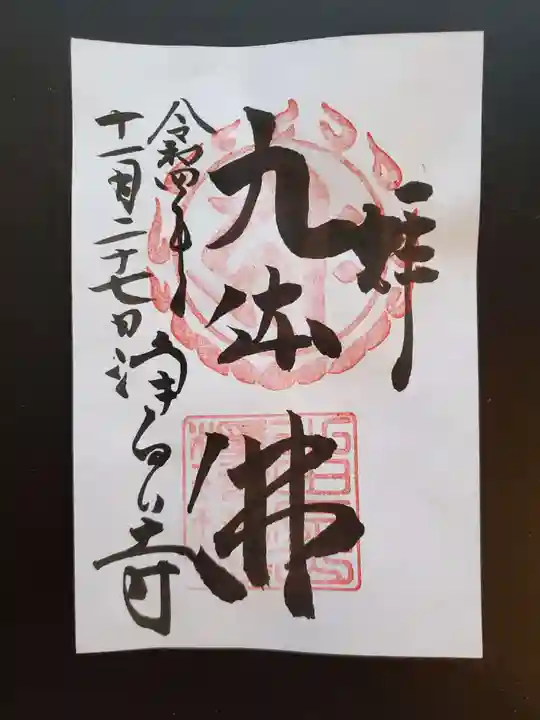 拝
九体佛
令和四年
十一月二十七日浄るり寺